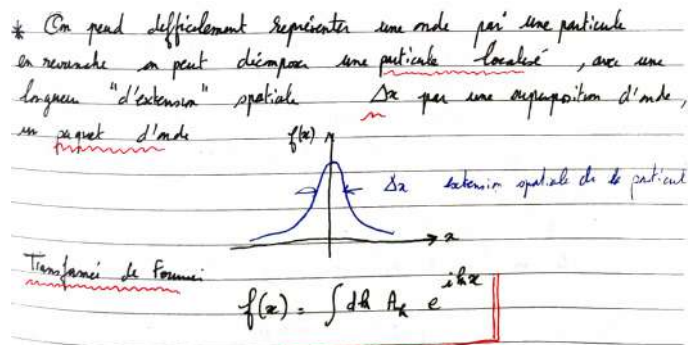 * On peud difficilement représenter une onde par une particule
en revanche on peut décomposer une particule localisé, avec une
longueur "d'extension" spatiale Δx par une superposition d'onde,
un paquet d'onde
f(x)
Δx extension spatiale de la particul
x
Transformé de Fourier
f(x) = ∫ dk A_k e^{ikx}